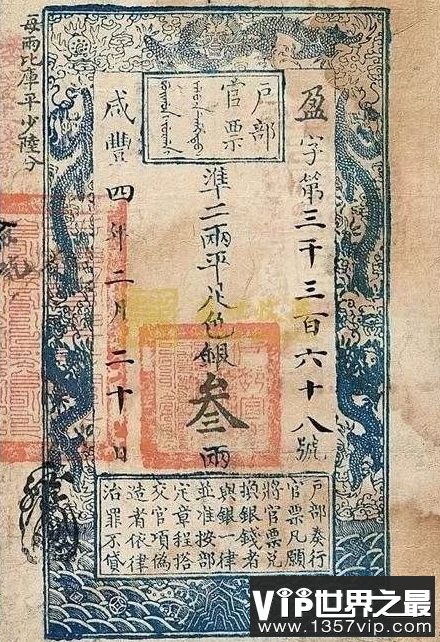 盈字第三千三百六十八號
戶部
官票
准二兩平足色銀叁兩
咸豐四年二月二十日
每兩比庫平少陸分
戶部奏行
官票凡願
將官票兌
換銀錢者
與銀一律
並准按部
定章程搭
交官項偽
造者依律
治罪不貸
VIP世界之最
www.1357vip.com